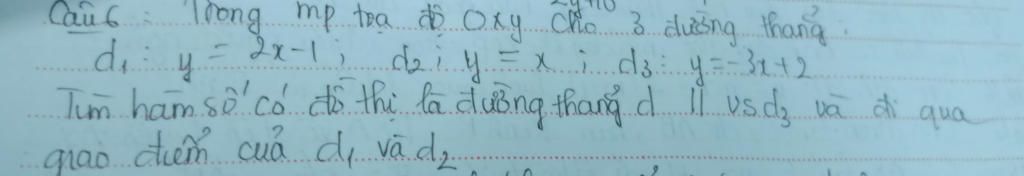 Câu 6 : Trong mp toạ độ Oxy cho 3 đường thẳng.
d₁: y = 2x-1; d₂: y = x; d₃: y=-3x+2
Tìm hàm số có đồ thị là đường thẳng d // vs d₃ và đi qua
giao điểm của d₁ và d₂